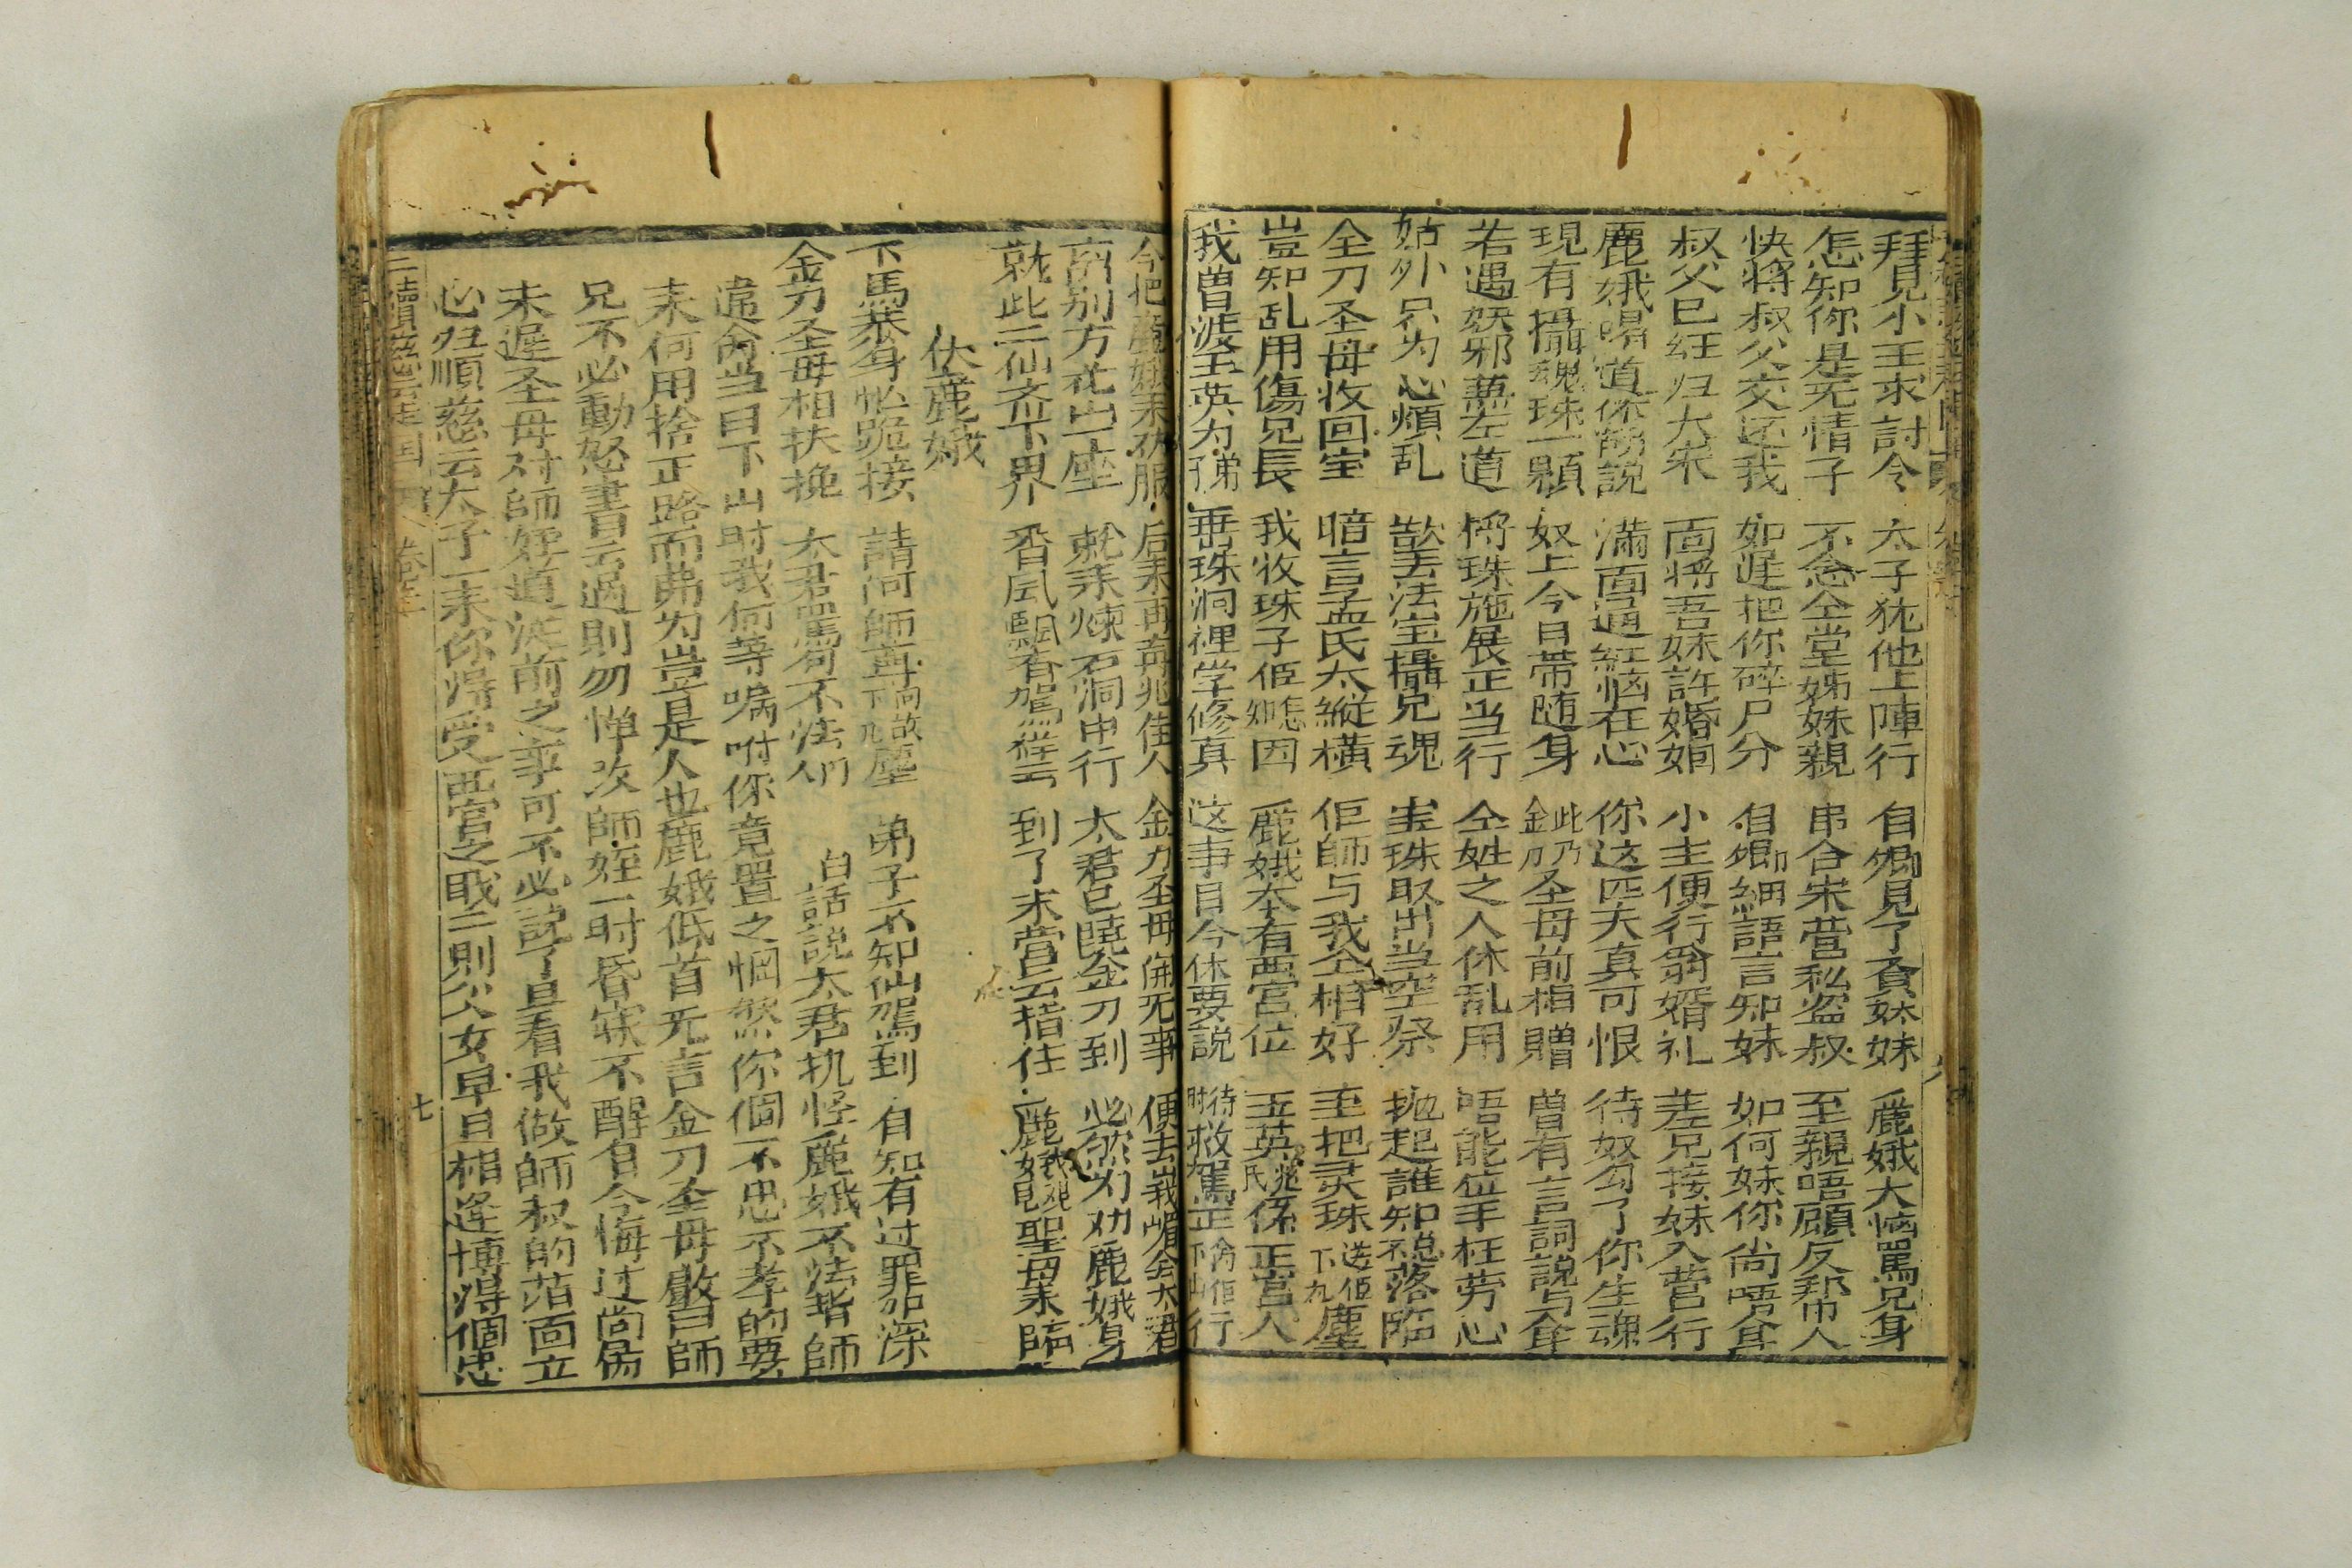 拜見小王求討令 太子犹他上陣行 自卿見了貞妹妹 麗娥大恼罵兄身
怎知你是无情子 不念仝堂姊妹親 串合宋营私盗叔 至親唔顧反邦巾人
快將叔父交还我 如遲把你碎尸分 自卿即細語言知妹 如何妹你尚唔
叔父已經归大宋 面將吾妹許婚姻 小主便行翁婿礼 差兄接妹入营行
麗娥喝道休胡説 滿面通紅恼在心 你这匹夫真可恨 待奴勾了你生魂
現有攝魂珠一顆 奴上今日带随身 此乃金刀圣母前相贈 曽有言詞説与
若遇妖邪兼左道 將珠施展正当行 仝姓之人休乱用 唔能应手枉劳心
姑外只为心煩乱 欲丢法宝攝兄魂 宝珠取出当空祭 抛起誰知不見落臨
全刀圣母收回宝 暗言孟氏太縱橫 佢師与我仝相好 至把灵珠送佢下九塵
豈知乱用傷兄長 我收珠子佢怨因 麗娥本有西宫位 玉英兆氏係正宫人
我曽渡玉英为弟 垂珠洞裡学修真 这事目今休要説 待時救駕正令佢下山行
今把麗娥来劝服 后来再奇兆佳人 金刀圣母開无事 便去峩嵋会太君
离别方花山一座 就来煉石洞中行 太君已曉金刀到 必然为劝麗娥身
就此二仙齐下界 香風飄香駕祥云 到了宋营云揩住 麗娥我見聖母来臨
伏麗娥
下馬恭身忙跪接 請问師尊何故下凡塵 弟子不知仙駕到 自知有过罪加深
金刀圣母相扶挽 太君罵句不法人们 白話説太君执怪麗娥不法背師
違命当日下山时我何等嘱咐你竟置之惘然你個不忠不孝的要
来何用捨正路而弗为豈是人也麗娥低首无言金刀圣母敬曰師
兄不必動怒書云過則勿惮改師姪一时昏寐不醒自今悔过尚属
未遲圣母对師姪道從前之事可不必説了且看我做師叔的范面立
心归順慈云太子一来你得受西宫之戢二則父女早日相逢博得個忠
三續慈云走国 卷 七